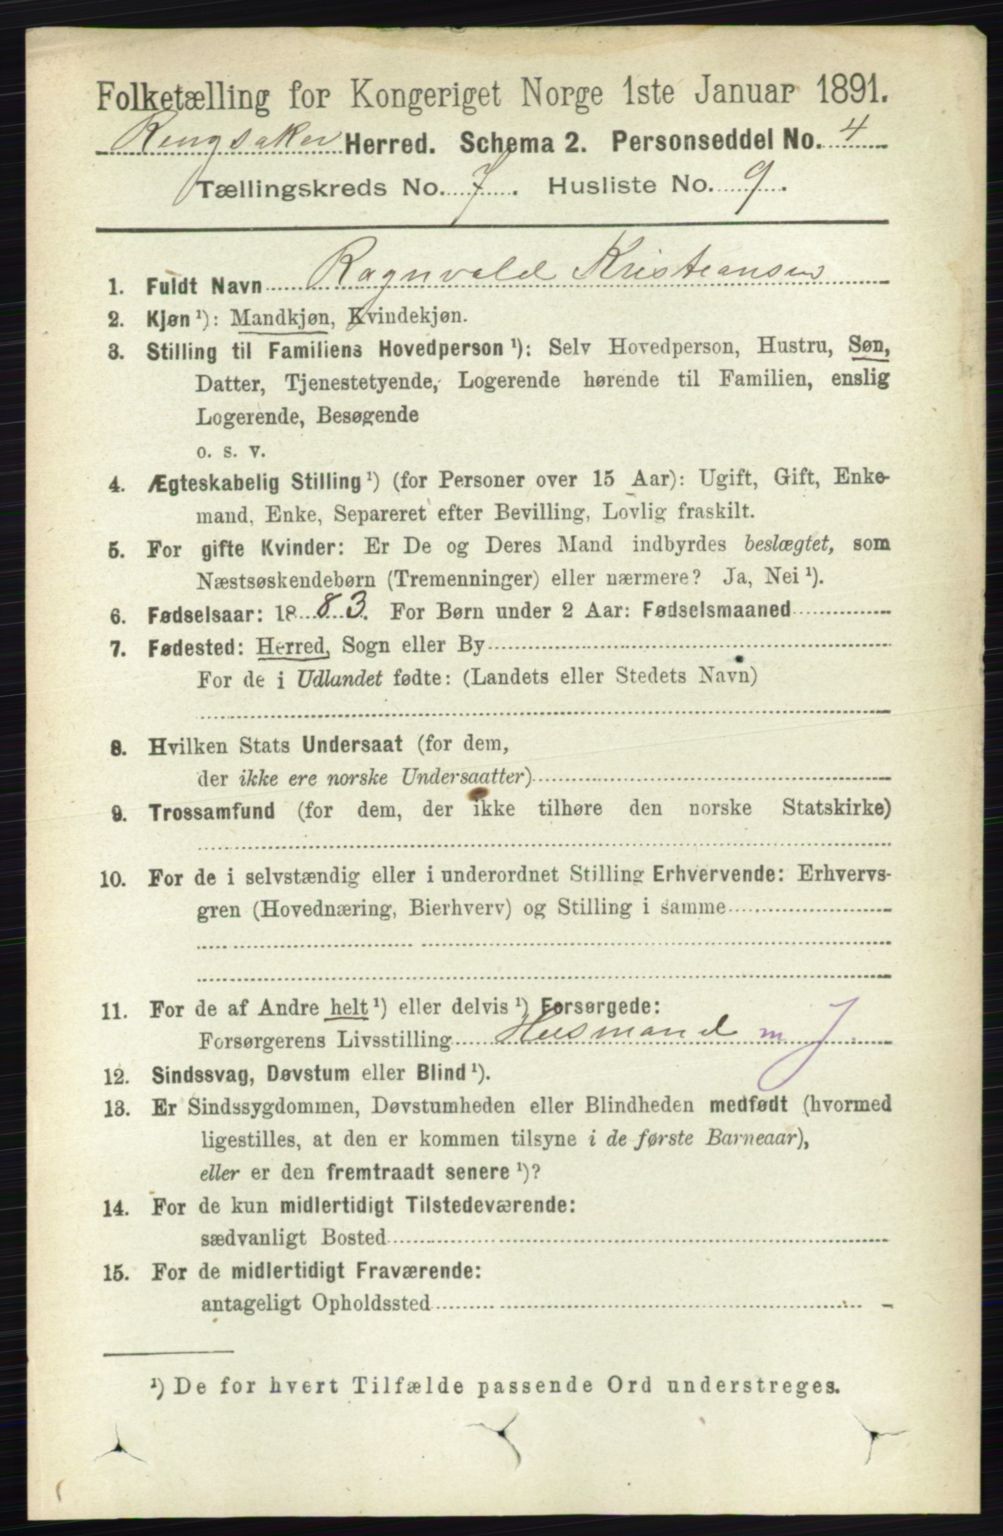 Folketælling for Kongeriget Norge 1ste Januar 1891.
Ringsaker Herred. Schema 2. Personseddel No. 4
Tællingskreds No. 7. Husliste No. 9.
1. Fuldt Navn Ragnvald Kristiansen
2. Kjøn ¹): Mandkjøn, Kvindekjøn.
3. Stilling til Familiens Hovedperson ¹): Selv Hovedperson, Hustru, Søn,
Datter, Tjenestetyende, Logerende hørende til Familien, enslig
Logerende, Besøgende
o. s. v.
4. Ægteskabelig Stilling ¹) (for Personer over 15 Aar): Ugift, Gift, Enke-
mand, Enke, Separeret efter Bevilling, Lovlig fraskilt.
5. For gifte Kvinder: Er De og Deres Mand indbyrdes beslægtet, som
Næstsøskendebørn (Tremenninger) eller nærmere? Ja, Nei ¹).
6. Fødselsaar: 1883. For Børn under 2 Aar: Fødselsmaaned
7. Fødested: Herred, Sogn eller By
For de i Udlandet fødte: (Landets eller Stedets Navn)
8. Hvilken Stats Undersaat (for dem,
der ikke ere norske Undersaatter)
9. Trossamfund (for dem, der ikke tilhøre den norske Statskirke)
10. For de i selvstændig eller i underordnet Stilling Erhvervende: Erhvervs-
gren (Hovednæring, Bierhverv) og Stilling i samme
11. For de af Andre helt ¹) eller delvis ¹) Forsørgede:
Forsørgerens Livsstilling Husmand m J
12. Sindssvag, Døvstum eller Blind ¹).
13. Er Sindssygdommen, Døvstumheden eller Blindheden medfødt (hvormed
ligestilles, at den er kommen tilsyne i de første Barneaar),
eller er den fremtraadt senere ¹)?
14. For de kun midlertidigt Tilstedeværende:
sædvanligt Bosted
15. For de midlertidigt Fraværende:
antageligt Opholdssted
¹) De for hvert Tilfælde passende Ord understreges.